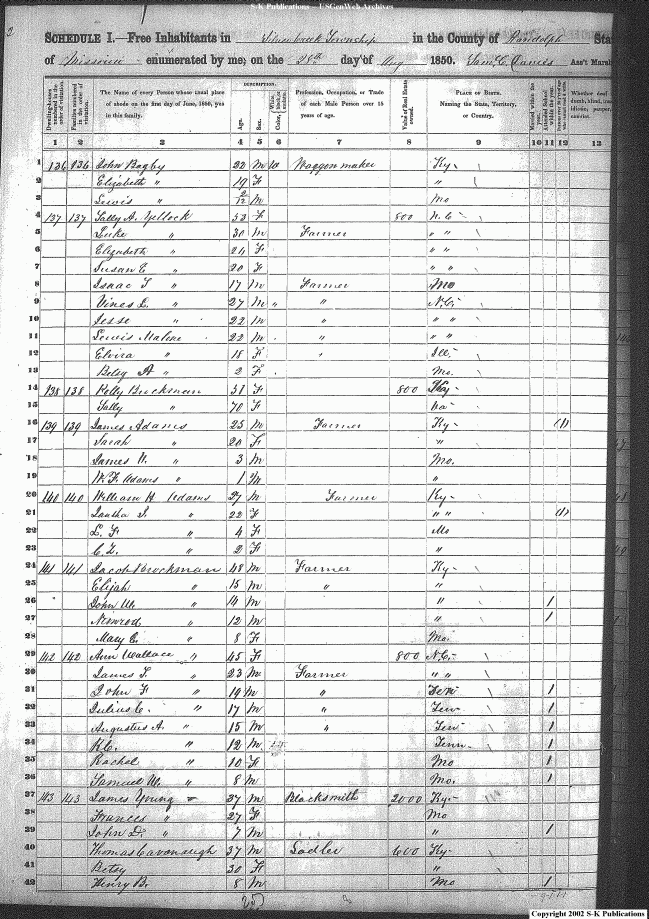 S-K Publications - USGenWeb Archives
SCHEDULE I.—Free Inhabitants in Township in the County of Randolph Sta
of Missouri enumerated by me, on the 28th day of Aug 1850. Sam C. Davis Ass't Marsh
Dwelling-houses numbered in the order of visitation. Families numbered in the order of visitation. The Name of every Person whose usual place of abode on the first day of June, 1850, was in this family. DESCRIPTION. Age. Sex. Color, White, black, or mulatto. Profession, Occupation, or Trade of each Male Person over 15 years of age. Value of Real Estate owned. PLACE OF BIRTH. Naming the State, Territory, or Country. Married within the year. Attended School within the year. Whether deaf
1 2 3 4 5 6 7 8 9 10 11 12 13
1 136 136 John Bagby 22 M W Waggon maker Ky-
2 Elizabeth " 19 F "
3 Lewis " 2/12 M Mo
4 137 137 Sally A. Yellock 53 F 800 N.C-
5 Luke " 30 M Farmer " "
6 Elizabeth " 24 F " "
7 Susan C " 20 F " "
8 Isaac T " 17 M Farmer Mo
9 Vines L. " 27 M " " N.C-
10 Jesse " 22 M " " "
11 Lewis Malone 22 M " " "
12 Elvira " 18 F " Ill-
13 Betsy A " 2 F Mo.
14 138 138 Polly Brockman 51 F 800 Ky-
15 Sally " 70 F Va
16 139 139 James Adams 25 M Farmer Ky- (1)
17 Sarah " 20 F "
18 James W. " 3 M Mo.
19 W. F. Adams " 1 M "
20 140 140 William H Adams 27 M Farmer Ky-
21 " 22 F " " (1)
22 L. F " 4 F Mo
23 C. L. " 2 F "
24 141 141 Jacob Brockman 48 M Farmer Ky-
25 Elijah " 15 M " "
26 John W. " 14 M " 1
27 Nimrod " 12 M " 1
28 Mary C. " 8 F Mo.
29 142 142 Ann Wallace " 45 F 800 N.C-
30 James T. " 23 M Farmer " "
31 John F " 19 M " Ten 1
32 Julius C. " 17 M " Ten 1
33 Augustus A. " 15 M " Ten 1
34 H.C. " 12 M Tenn 1
35 Rachel " 10 F Mo 1
36 Samuel W. " 8 M Mo. 1
37 143 143 James Young 37 M Blacksmith 2000 Ky-
38 Frances " 27 F Mo
39 John D. " 7 M " 1
40 Thomas Cavanaugh 37 M Sadler 600 Ky-
41 Betsy 30 F "
42 Henry B. 8 M Mo 1
Copyright 2002 S-K Publications